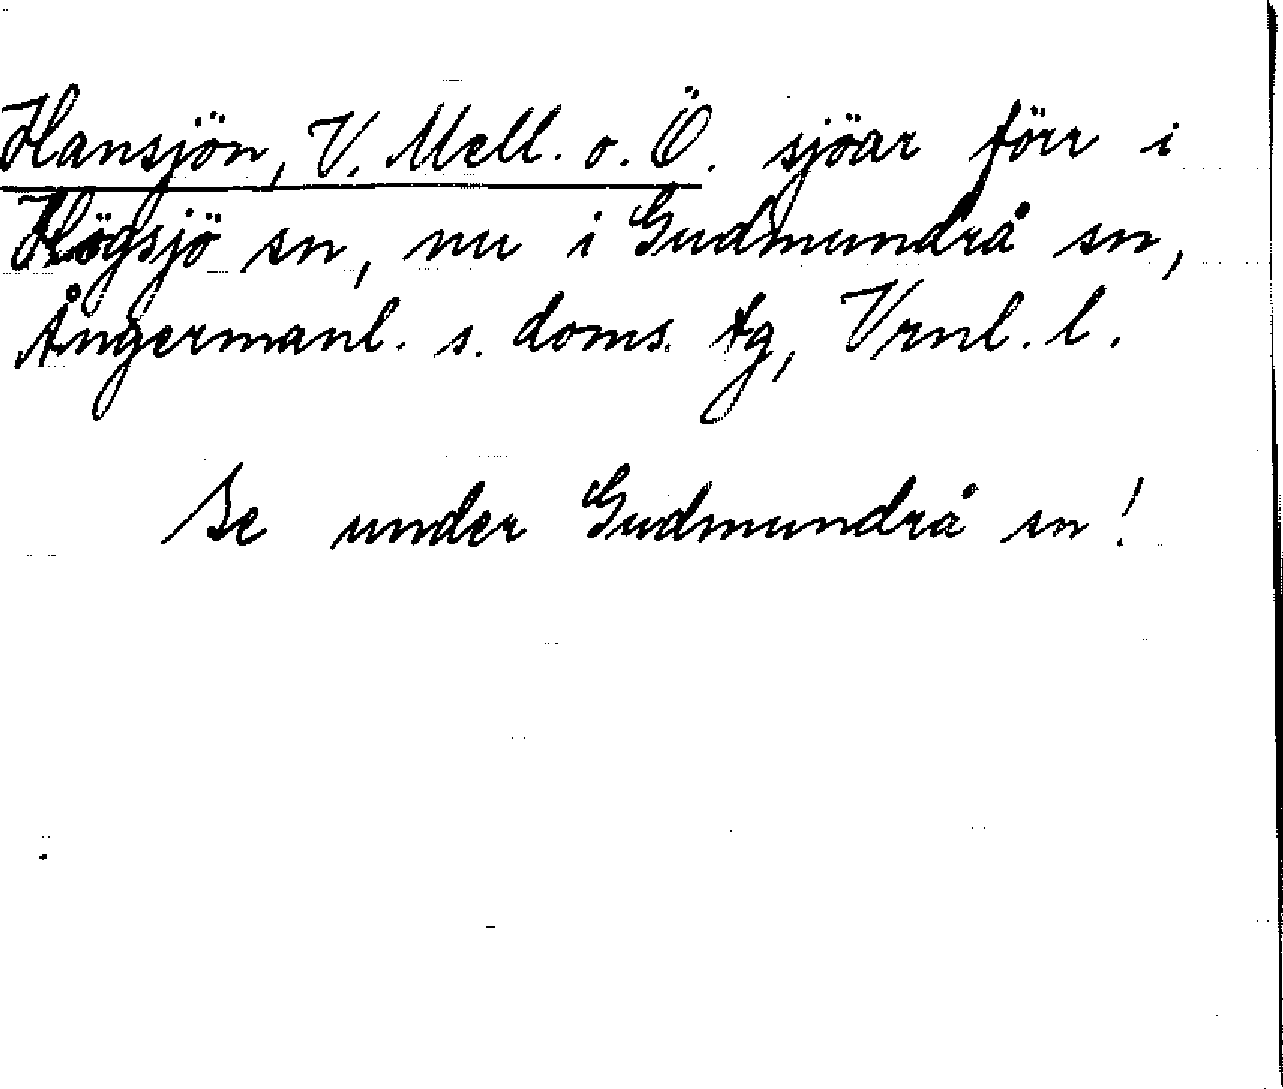 Hansjön, V. Mell. o. Ö. sjöar förr i
Högsjö sn, nu i Gudmundrå sn,
Ångermanl. s. doms. tg, Vrnl. l.
Se under Gudmundrå sn!